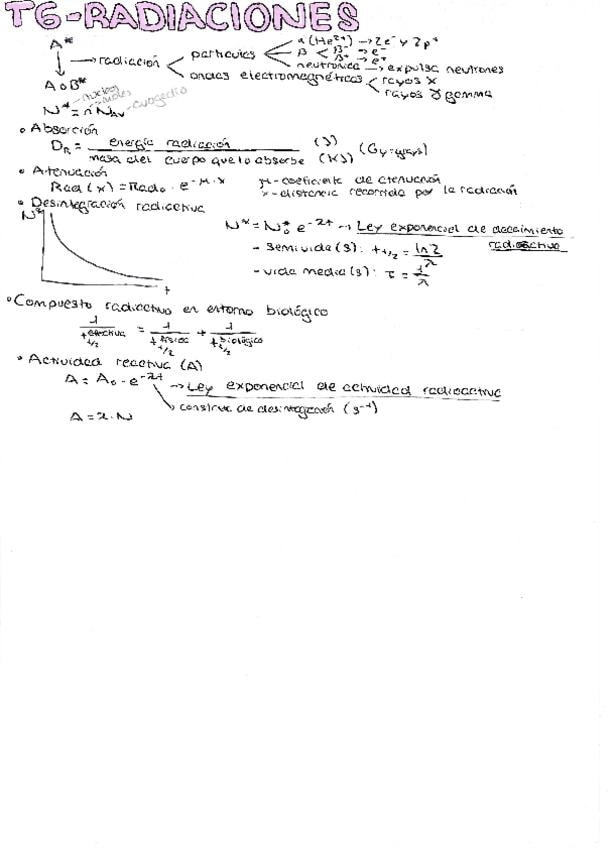 T6-RADIACIONES
A* → A o B*
→ radiación < partículas < α (He²⁺) → 2e⁻ y 2p⁺
β < β⁻ → e⁻
β⁺ → e⁺
neutrónica → expulsa neutrones
ondas electromagnéticas < rayos X
rayos γ gamma
N* = n · N_AV - avogadro
núcleos
• Absorción
D_R = energía radiación (J) / masa del cuerpo que lo absorbe (Kg) (Gy=grays)
• Atenuación
Rad (x) = Rad₀ · e^(-μ·x)
μ - coeficiente de atenuación
x - distancia recorrida por la radiación
• Desintegración radiactiva
N*
t
N* = N₀* e^(-λt) → Ley exponencial de decaimiento radioactivo
- semivida (s): t₁/₂ = ln 2 / λ
- vida media (s): τ = 1 / λ
• Compuesto radiactivo en entorno biológico
1 / t₁/₂ efectiva = 1 / t₁/₂ física + 1 / t₁/₂ biológico
• Actividad reactiva (A)
A = A₀ · e^(-λt) → Ley exponencial de actividad radioactiva
↘ constante de desintegración (s⁻¹)
A = λ · N